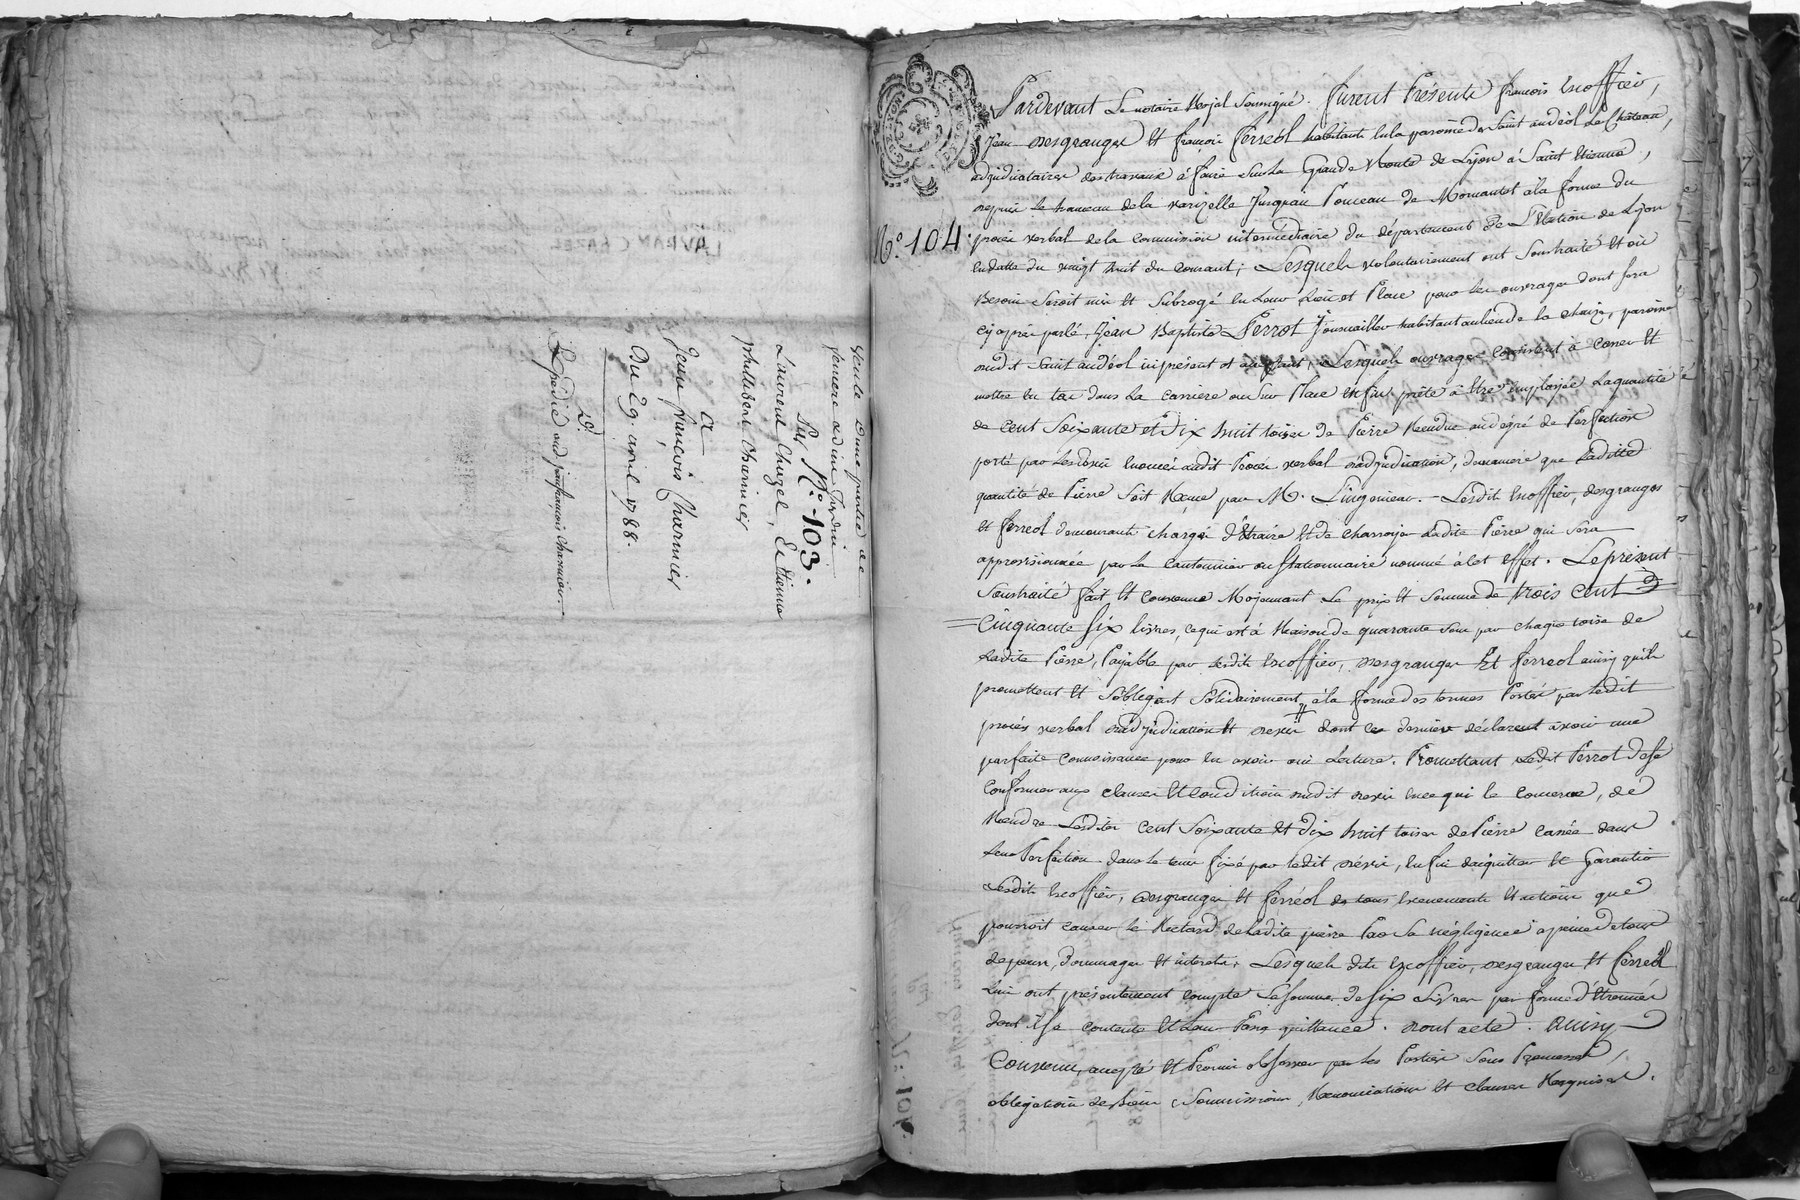 Vente d'une partie de
femere de un Jardin
Par N.° 103.
Laurent Chazel, Et Etienne
philibert Charmier
A
Jean françois Charmier
Du 29. avril 1788.
Expedié aud jeanfrançois Charmier.
N.° 104.
Pardevant Le notaire Royal Soussigné. furent Présents françois Escoffier,
Jean Desgranges Et françois Ferreol habitants en la paroisse de Saint andéol le Château,
adjudicataires des travaux à faire sur la Grande Route de Lyon à Saint Etienne,
depuis le hameau de la varizelle Jusqu'au Ponceau de Mornantet à la forme du
procès verbal de la Commission intermédiaire du département de L'Election de Lyon
en datte du vingt huit du Courant; Lesquels volontairement ont Soustraité Et où
Besoin Seroit mis Et Subrogé en Leur Lieu et Place pour les ouvrages dont sera
cy après parlé, Jean Baptiste Perrot Journaillier habitant au lieu de la Chaize, paroisse
dudt Saint andéol ici présent et acceptant, Lesquels ouvrages Consistent à Casser Et
mettre en tas dans La Carriere ou sur Place Enfin prête à Etre employée La quantité
de Cent Soixante Et Dix huit toises de Pierre Rendue au dégré de Perfection
porté par Les devis Enoncés audit Procès verbal d'adjudication, de maniere que Laditte
quantité de Pierre Soit Recue par M. L'ingenieur. - Lesdits Escoffier, desgranges
Et ferreol demeurants chargés d'Etraire Et de Charroyer Ladite Pierre qui Sera
approvisionnée par Le Cantonnier ou Stationnaire nommé à Cet Effet. Le présent
Soustraité fait Et Convenu Moyennant Le prix Et Somme de trois Cent
Cinquante Six livres, ce qui est à Raison de quarante Sous par chaque toise de
Ladite Pierre, Payable par Lesdits Escoffier, desgranges Et ferreol ainsy qu'ils
promettent Et S'obligent Solidairement, à la forme des termes Portés par Ledit
procès verbal d'adjudication Et devis dont ce dernier déclarent avoir une
parfaite Connoissance pour en avoir oui Lecture. Promettant Ledit Perrot de se
Conformer aux clauses Et Conditions dudit devis en ce qui le Concerne, de
Rendre Lesdites Cent Soixante Et Dix huit toises de Pierre Cassée dans
Leur Perfection dans Le tems fixé par Ledit dévis, enfin d'acquitter Et Garantir
Lesdits Escoffier, desgranges Et ferréol de tous Evenements Et actions que
pourroit Causer le Rectard de Ladite pierre Par Sa négligence à peine de tous
depens, dommages Et interets. Lesquels dits Escoffier, desgranges Et ferreol
lui ont présentement Compté La Somme de Six Livres par forme d'Etrennes
dont il se contente Et Leur Passe quittance. Dont acte. Ainsy
Convenu, accepté Et Promis observer par les Parties Sous Promesses,
obligations de Biens, Soumissions, Renonciations Et clauses Requises.